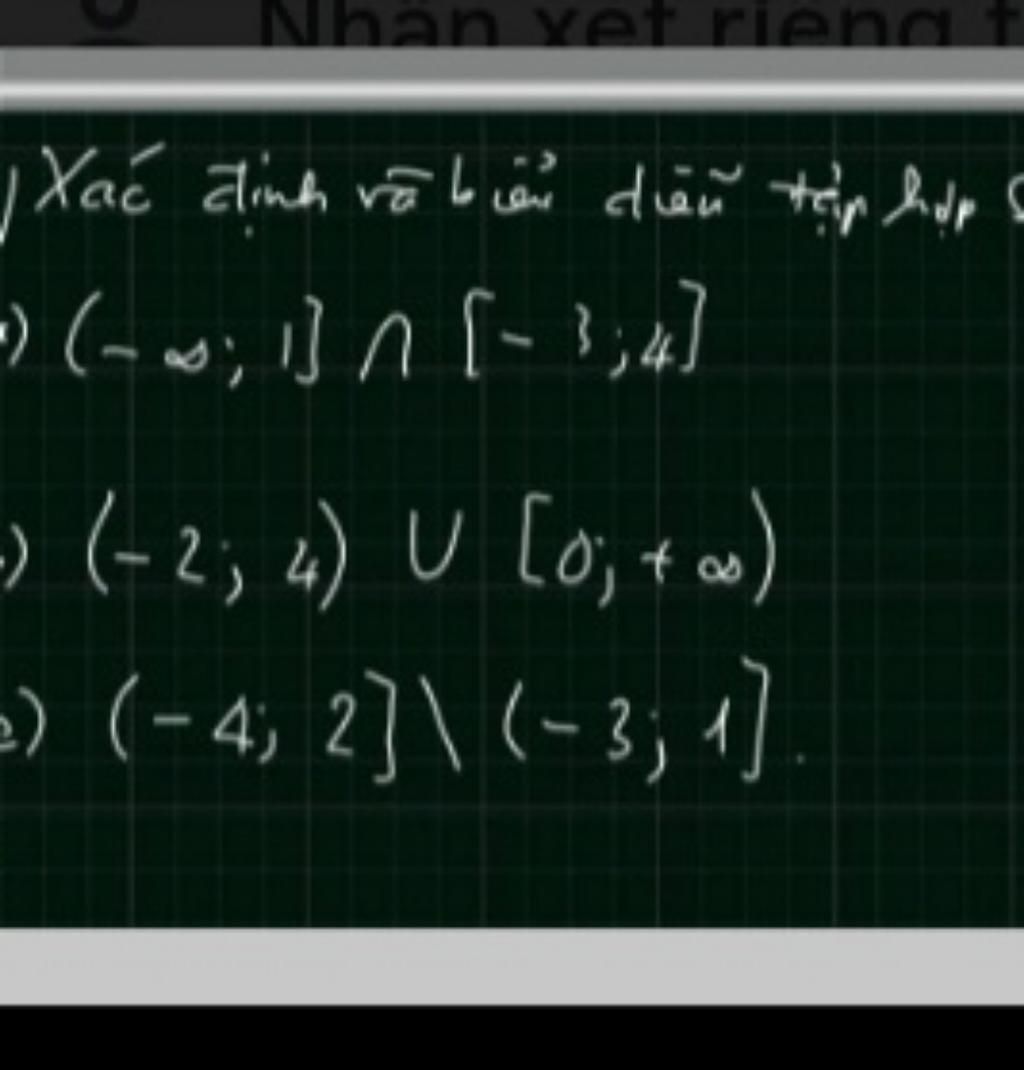 Nhận xét riêng t
Xác định và biểu diễn tập hợp
(-∞; 1] ∩ [-3; 4]
(-2; 4) ∪ [0; +∞)
(-4; 2] \ (-3; 1].